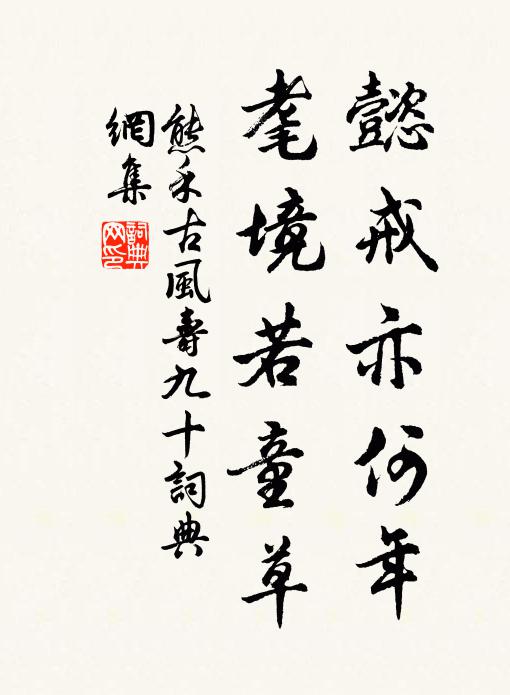 懿戒亦何年
耄境若童草
熊禾古風壽九十詞典
網集
詞典网印